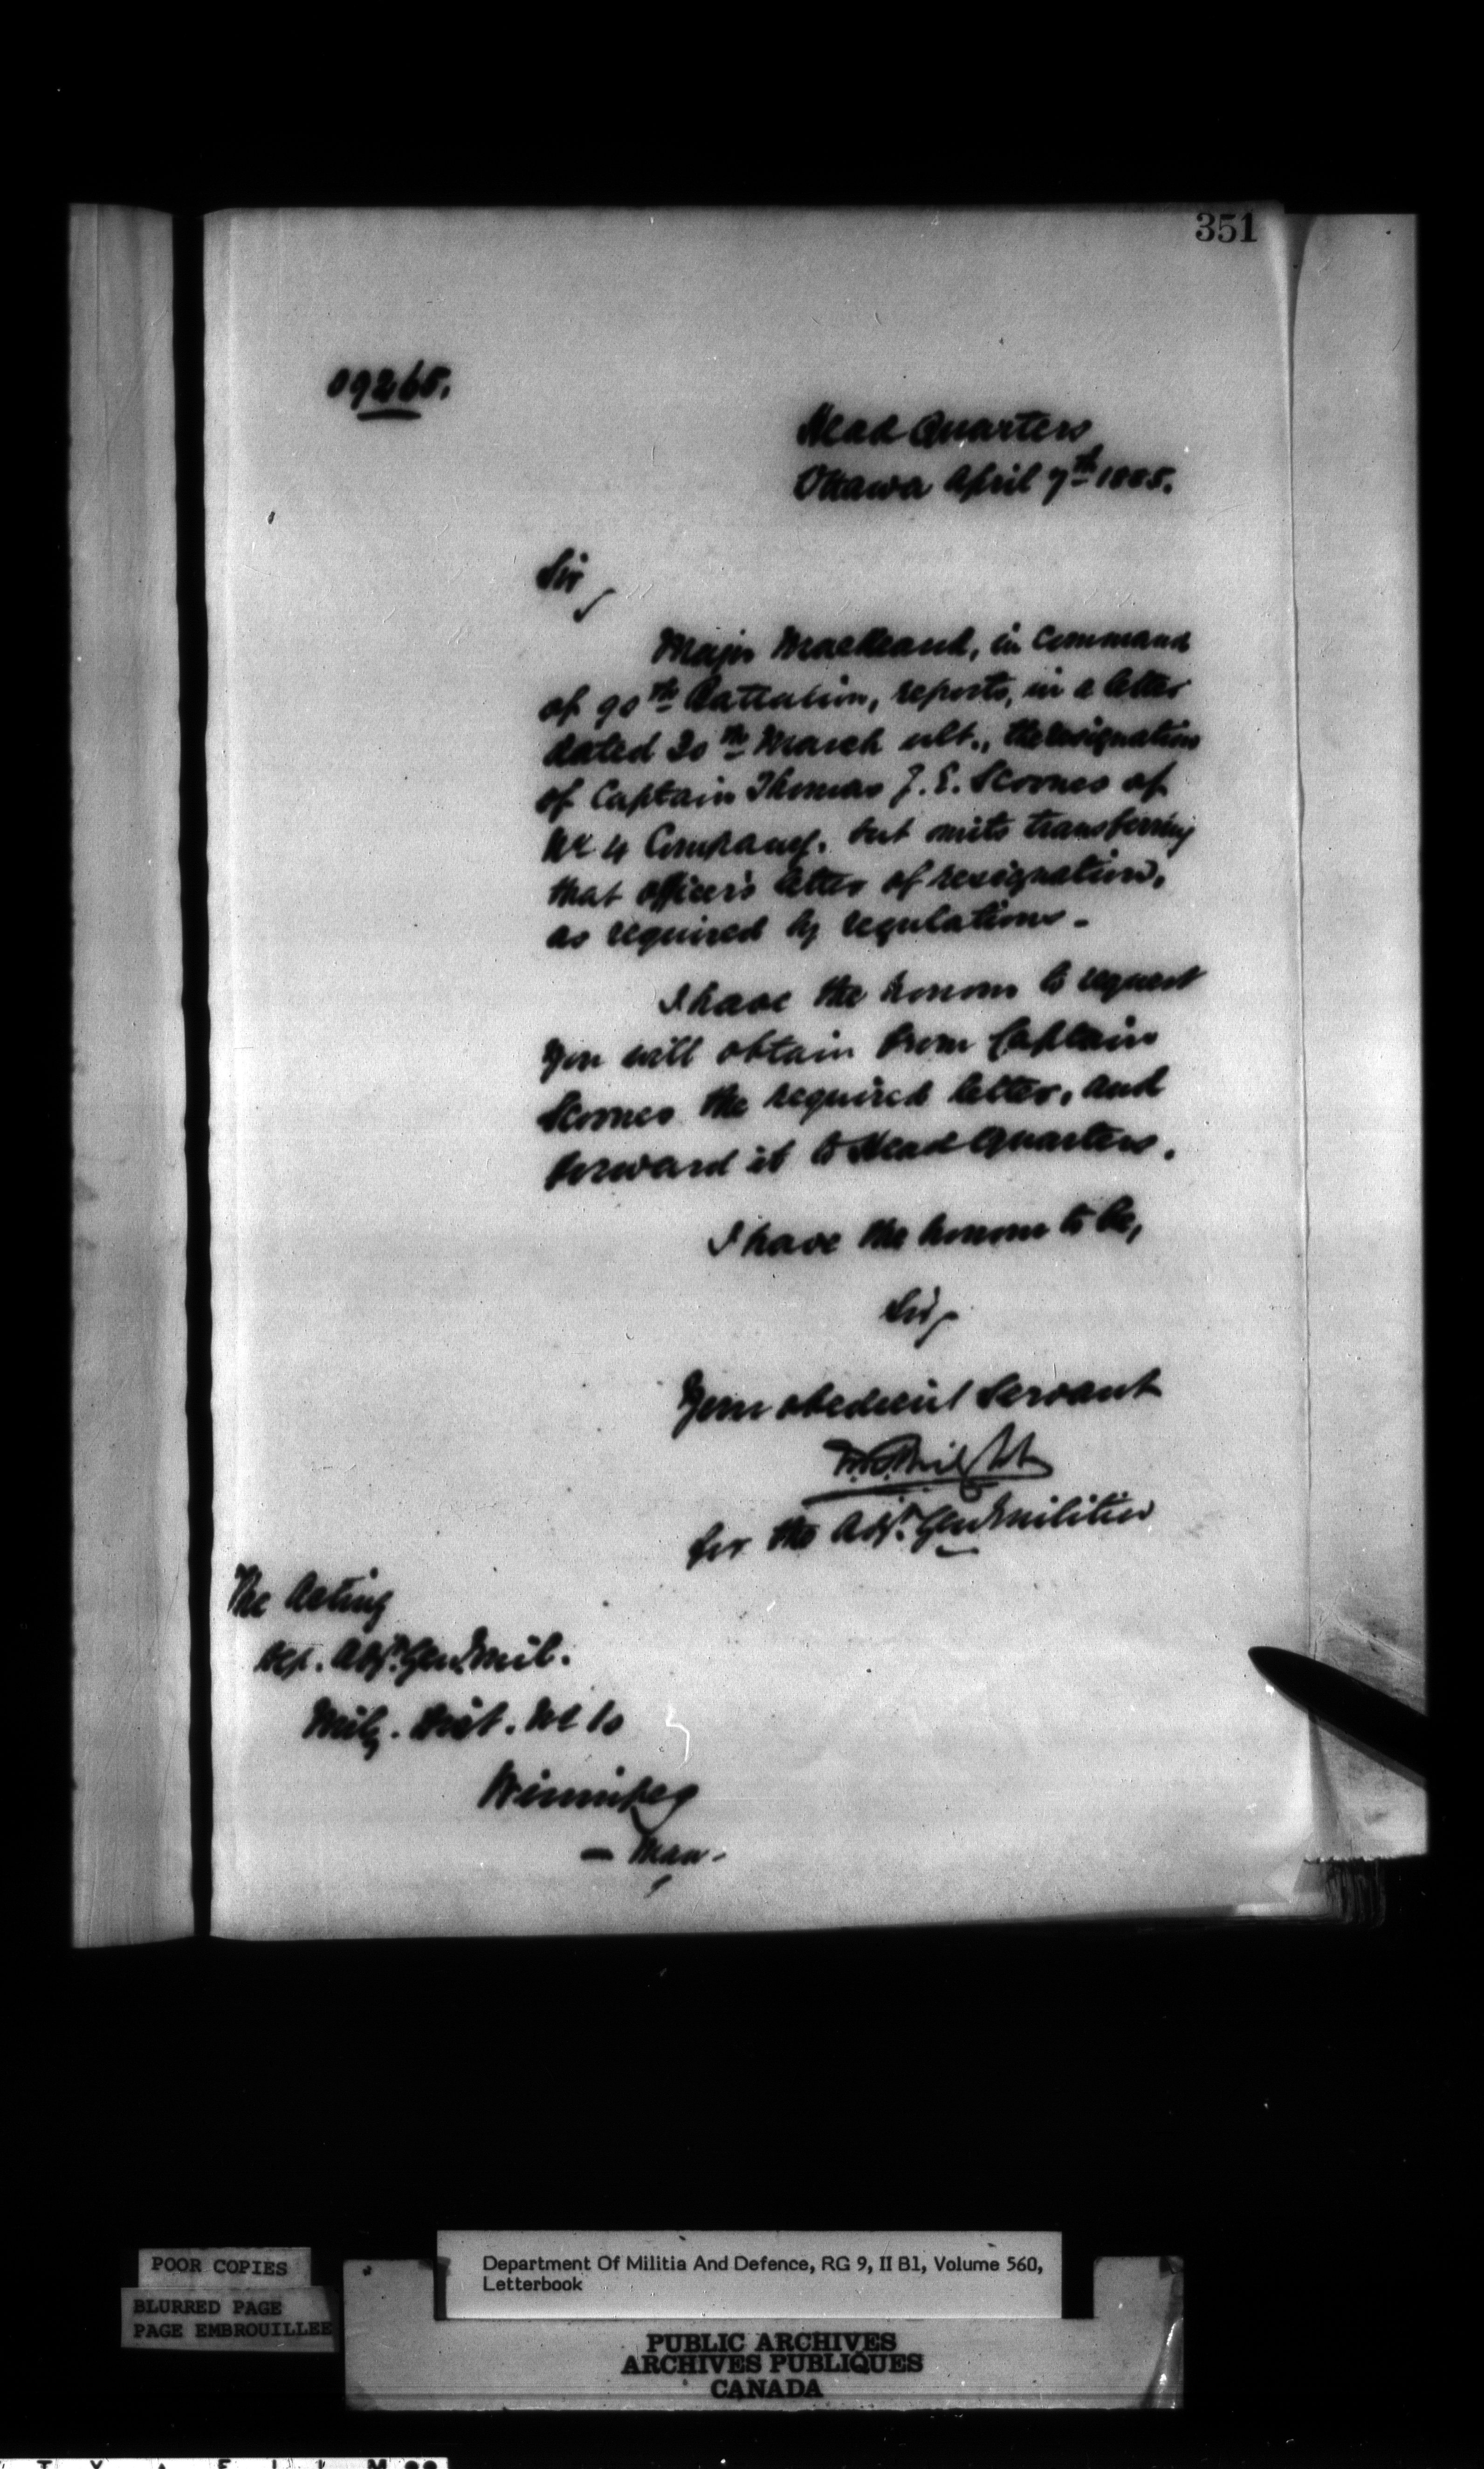 351
09265.
Head Quarters
Ottawa April 7th 1885.
Sir,
Major MacKeand, in command
of 90th Battalion, reports, in a letter
dated 20th March ult., the resignation
of Captain Thomas J. E. Scoones of
No 4 Company. but omits transferring
that officer's letter of resignation,
as required by regulations.-
I have the honour to request
you will obtain from Captain
Scoones the required letter, and
forward it to Head Quarters.
I have the honour to be,
Sir,
Your obedient Servant
for the Adjt. Genl Militia
The Acting
Dep. Adjt. Genl. Mil.
Mily. Dist. No 10
Winnipeg
- Man -
POOR COPIES
BLURRED PAGE
PAGE EMBROUILLEE
Department Of Militia And Defence, RG 9, II B1, Volume 560,
Letterbook
PUBLIC ARCHIVES
ARCHIVES PUBLIQUES
CANADA